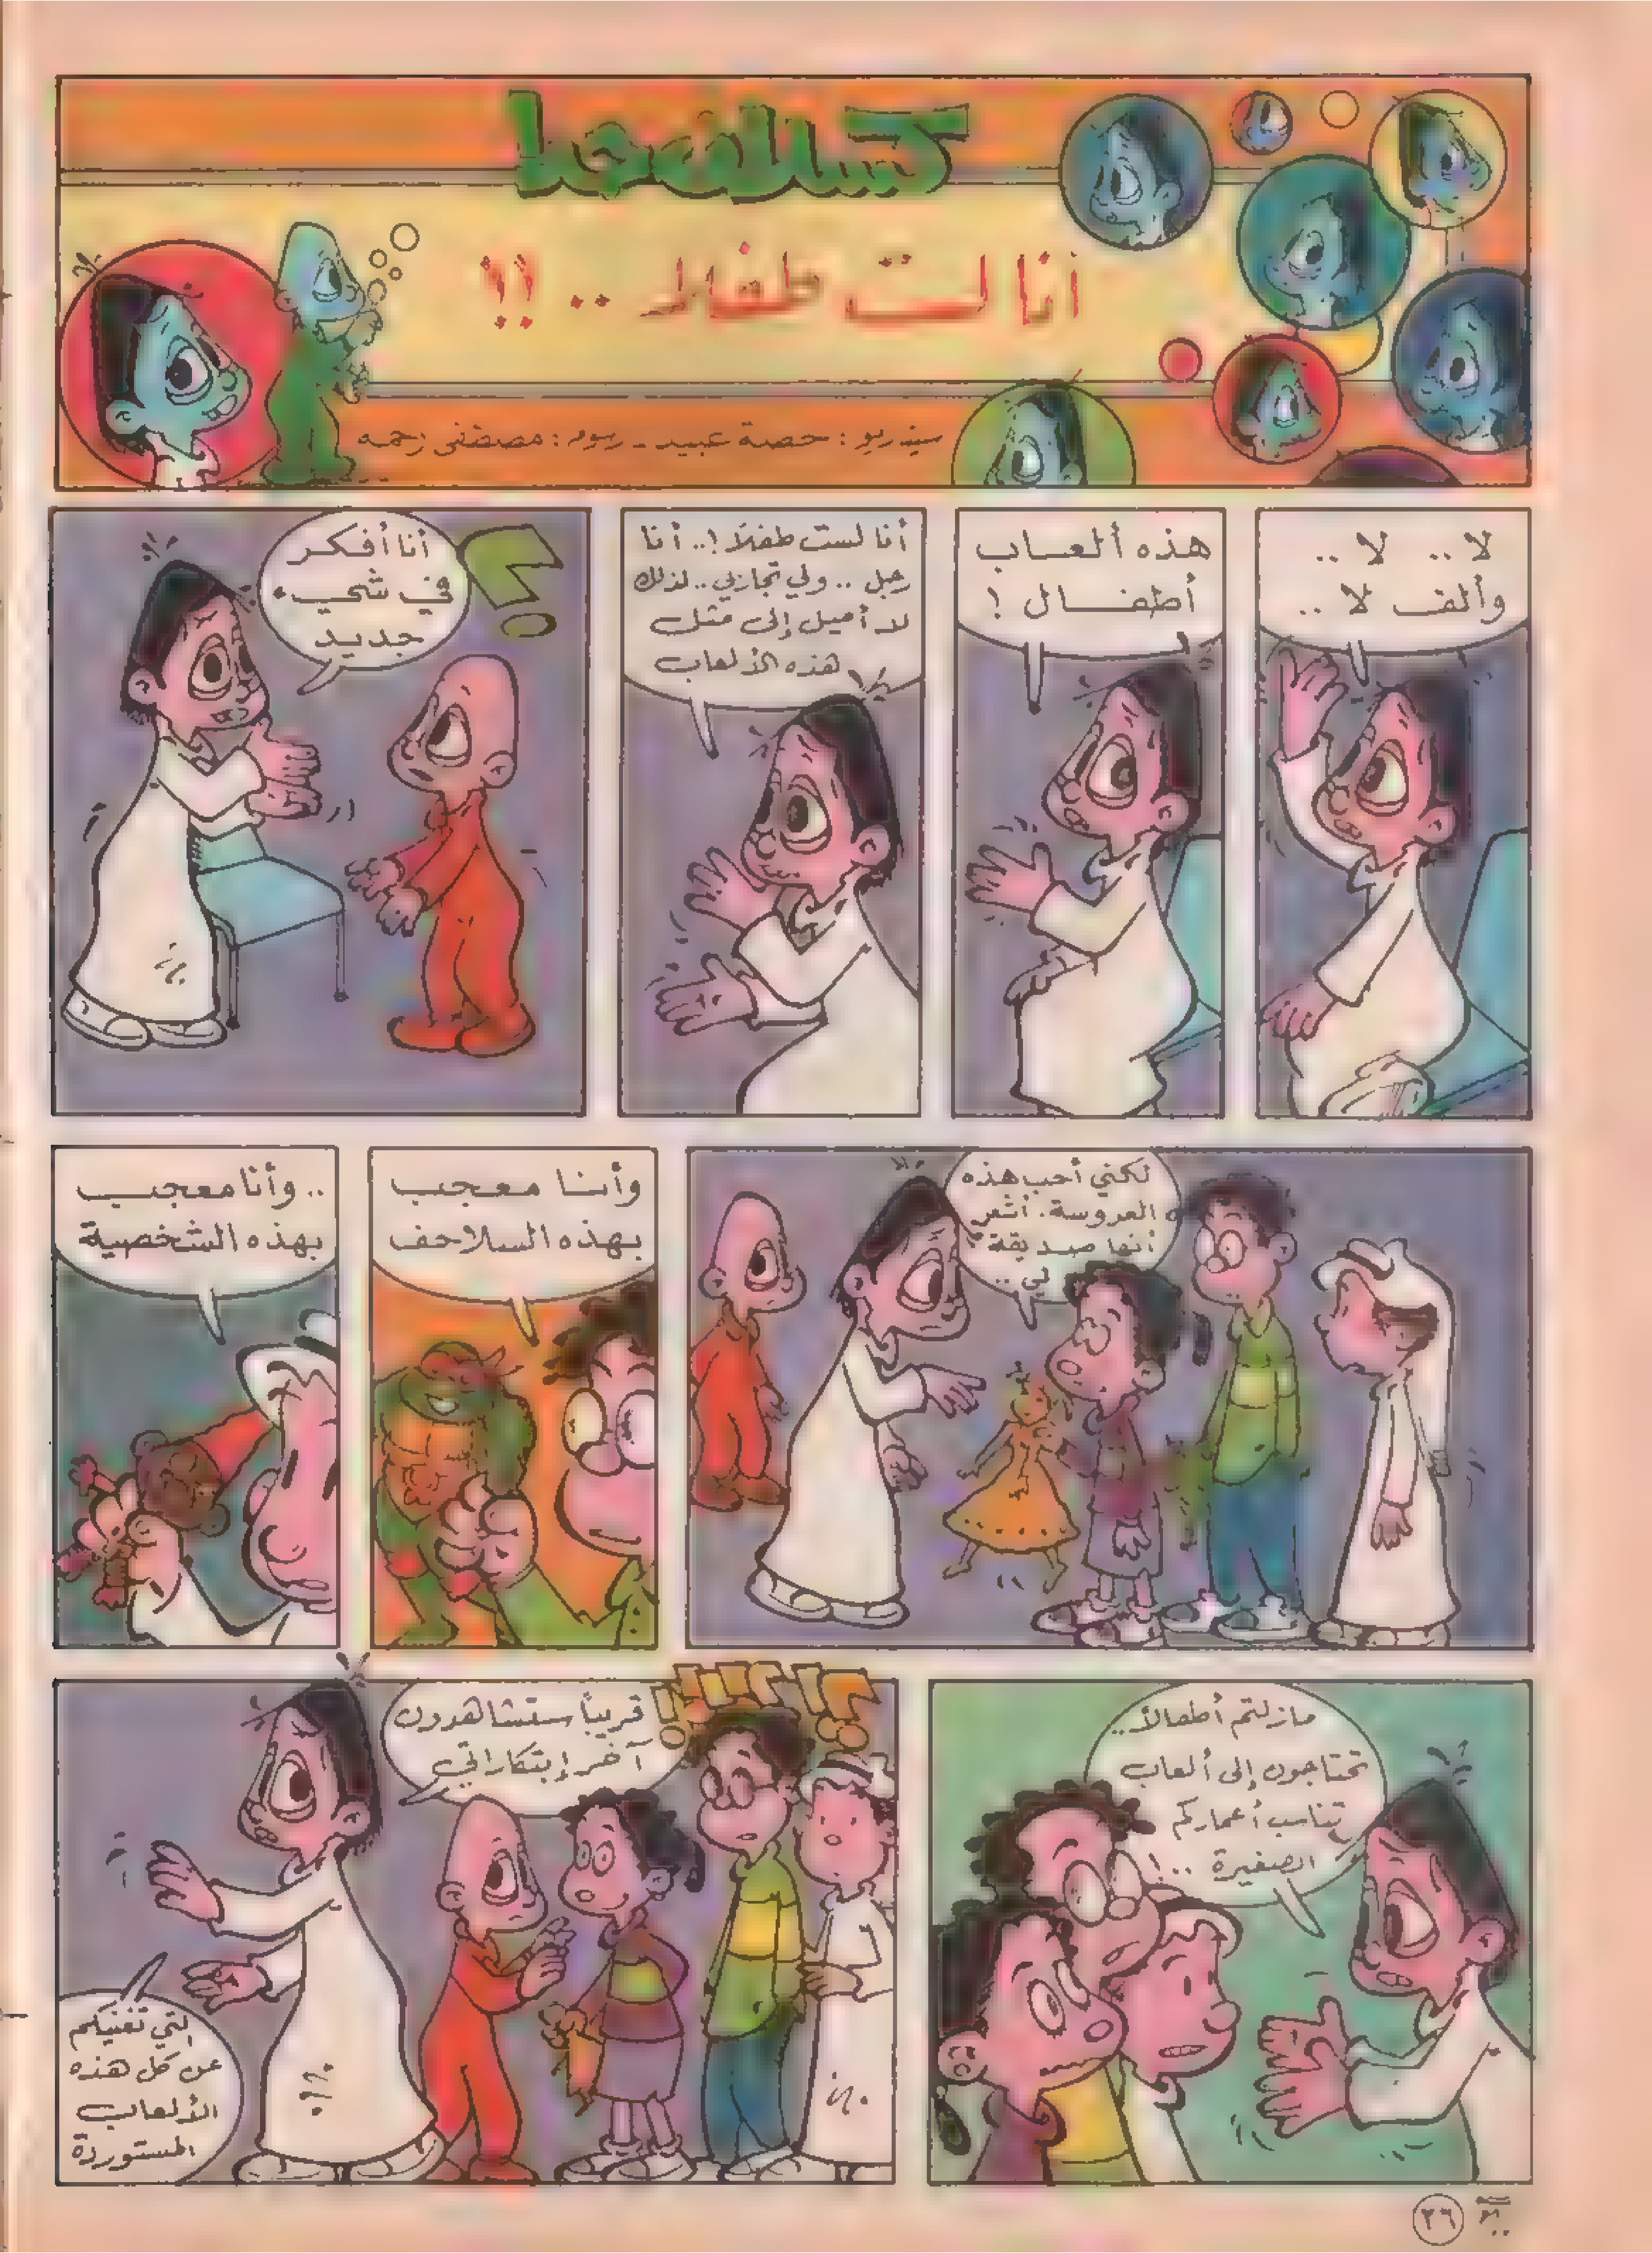 كسلان جدا
أنا لست طفلا ..!!
سيناريو : حصة عبيد - رسوم : مصطفى رحمه
لا .. لا ..
وألف لا ..
هذه ألعاب
أطفال !
أنا لست طفلاً !.. أنا
رجل .. ولي تجاربي .. لذلك
لا أميل إلى مثل
هذه الألعاب
أنا أفكر
في شيء
جديد
؟
لكني أحب هذه
العروسة. أشعر
أنها صديقة
لي ..
وأنا معجب
بهذه السلاحف
.. وأنا معجب
بهذه الشخصية
مازلتم أطفالاً..
تحتاجون إلى ألعاب
تناسب أعماركم
الصغيرة ..!
قريباً ستشاهدون
آخر إبتكاراتي
؟!؟!؟!
التي تغنيكم
عن كل هذه
الألعاب
المستوردة
٢٦